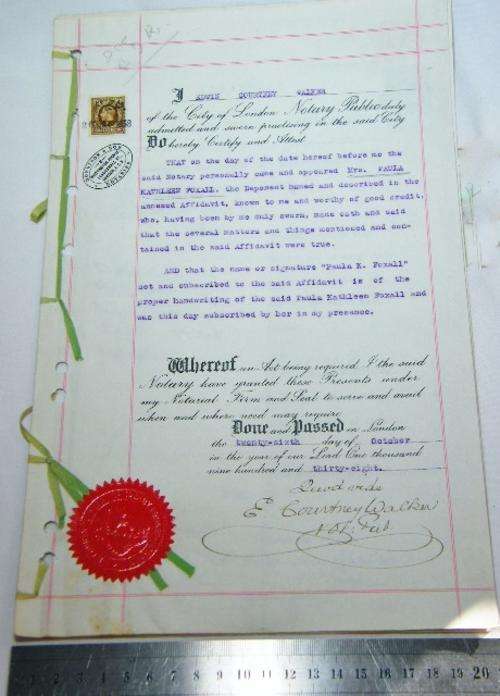 I EDWIN COURTNEY WALKER
of the City of London Notary Public duly
admitted and sworn practising in the said City
Do hereby Certify and Attest
THAT on the day of the date hereof before me the
said Notary personally came and appeared Mrs. PAULA
KATHLEEN FOXALL, the Deponent named and described in the
annexed Affidavit, known to me and worthy of good credit,
who, having been by me duly sworn, made oath and said
that the several matters and things mentioned and con-
tained in the said Affidavit were true.
AND that the name or signature "Paula K. Foxall"
set and subscribed to the said Affidavit is of the
proper handwriting of the said Paula Kathleen Foxall and
was this day subscribed by her in my presence.
Whereof an Act being required I the said
Notary have granted these Presents under
my Notarial Firm and Seal to serve and avail
when and where need may require
Done and Passed in London
the twenty-sixth day of October
in the year of our Lord One thousand
nine hundred and thirty-eight.
Quod attestor
E Courtney Walker
Not. Pub.
1 2 3 4 5 6 7 8 9 10 11 12 13 14 15 16 17 18 19 20